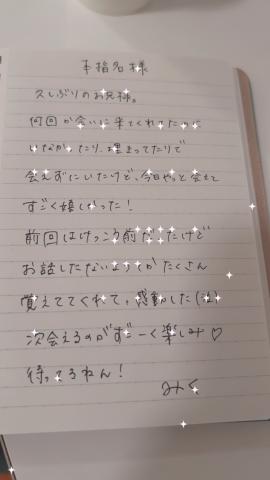 本指名様
久しぶりのお兄様。
何回か会いに来てくれてたのに
いなかったり、埋まってたりで
会えずにいたけど、今日やっと会えて
すごく嬉しかった!
前回はけっこう前だったけど
お話したないようとかたくさん
覚えててくれて、感動した(泣)
次会えるのがずーっと楽しみ♡
待ってるねん!
みく